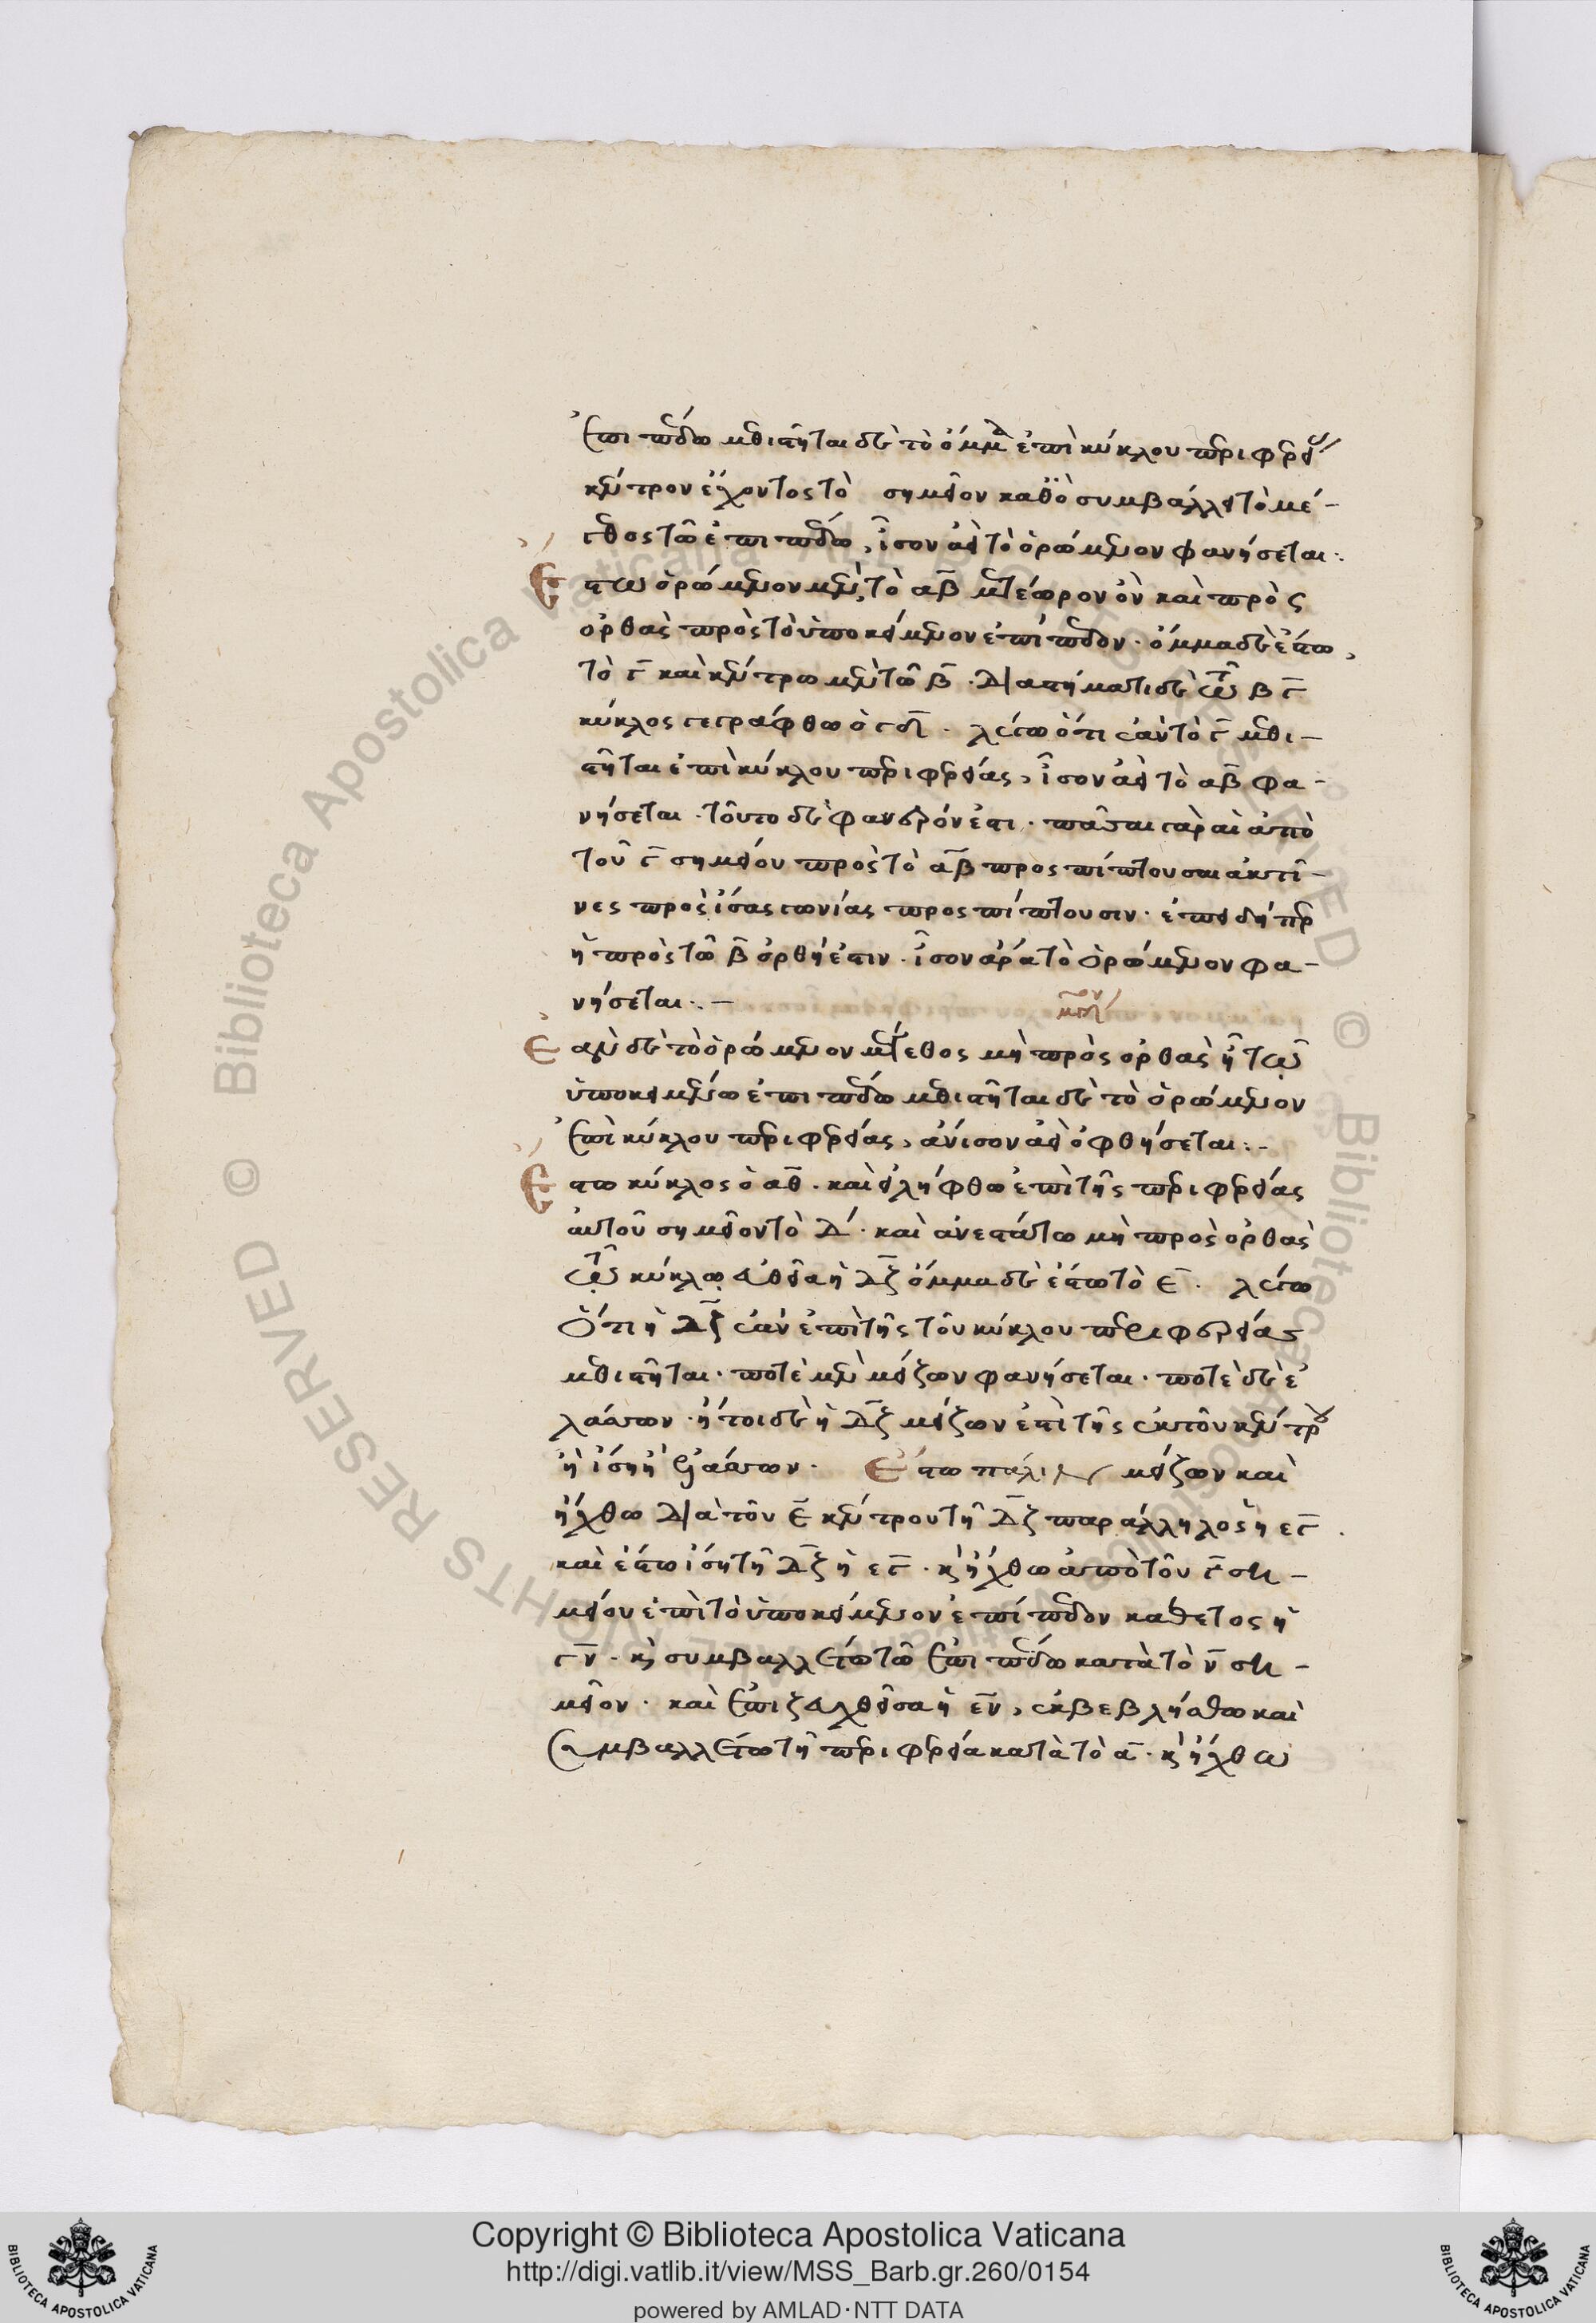 ἐπιπέδω μεθιστῆται δὲ τὸ ὄμμα ἐπὶ κύκλου περιφερείας
κέντρον ἔχοντος τὸ σημεῖον καθὸ συμβάλλει τὸ μέ-
γεθος τῶ ἐπιπέδω, ἶσον ἀεὶ τὸ ὁρώμενον φανήσεται:
Ἔστω ὁρώμενον μὲν τὸ αβ μετέωρον ὂν καὶ πρὸς
ὀρθὰς πρὸς τὸ ὑποκείμενον ἐπίπεδον· ὄμμα δὲ ἔστω,
τὸ γ καὶ κέντρω μὲν τῶ β· διαστήματι δὲ τῶ βγ
κύκλος γεγράφθω ὁ γδ· λέγω ὅτι ἐὰν τὸ γ μεθι-
στῆται ἐπὶ κύκλου περιφερείας, ἶσον ἀεὶ τὸ αβ φα-
νήσεται· τοῦτο δὲ φανερόν ἐστι· πᾶσαι γὰρ αἱ ἀπὸ
τοῦ γ σημείου πρὸς τὸ αβ προσπίπτουσαι ἀκτῖ-
νες πρὸς ἴσας γωνίας προσπίπτουσιν· ἐπειδήπερ
ἡ πρὸς τῶ β ὀρθή ἐστιν· ἶσον ἄρα τὸ ὁρώμενον φα-
νήσεται:-
Ἐὰν δὲ τὸ ὁρώμενον μέγεθος μὴ πρὸς ὀρθὰς ἦ τῷ
ὑποκειμένω ἐπιπέδω μεθιστῆται δὲ τὸ ὁρώμενον
ἐπὶ κύκλου περιφερείας, ἄνισον ἀεὶ ὀφθήσεται:-
Ἔστω κύκλος ὁ αθ· καὶ εἰλήφθω ἐπὶ τῆς περιφερείας
αὐτοῦ σημεῖον τὸ δ· καὶ ἀνεστάτω μὴ πρὸς ὀρθὰς
τῷ κύκλῳ εὐθεῖα ἡ δζ ὄμμα δὲ ἔστω τὸ ε· λέγω
ὅτι ἡ δζ ἐὰν ἐπὶ τῆς τοῦ κύκλου περιφερείας
μεθιστῆται· ποτὲ μὲν μείζων φανήσεται· ποτὲ δὲ ἐ
λάσσων· ἤτοι δὲ ἡ δζ μείζων ἐστὶ τῆς ἐκ τοῦ κέντρου
ἢ ἴση ἢ ἐλάσσων· Ἔστω πάλιν μείζων καὶ
ἤχθω διὰ τοῦ ε κέντρου τῆ δζ παράλληλος ἡ εγ·
καὶ ἔστω ἴση τῆ δζ ἡ εγ· κὶ ἤχθω ἀπὸ τοῦ γ ση-
μείου ἐπὶ τὸ ὑποκείμενον ἐπίπεδον κάθετος ἡ
γν· κὶ συμβαλλέτω τῶ ἐπιπέδω κατὰ τὸ ν ση-
μεῖον· καὶ ἐπιζευχθεῖσα ἡ εν, ἐκβεβλήσθω καὶ
συμβαλλέτω τῆ περιφερεία κατὰ τὸ α· κὶ ἤχθω
Copyright © Biblioteca Apostolica Vaticana
http://digi.vatlib.it/view/MSS_Barb.gr.260/0154
powered by AMLAD·NTT DATA